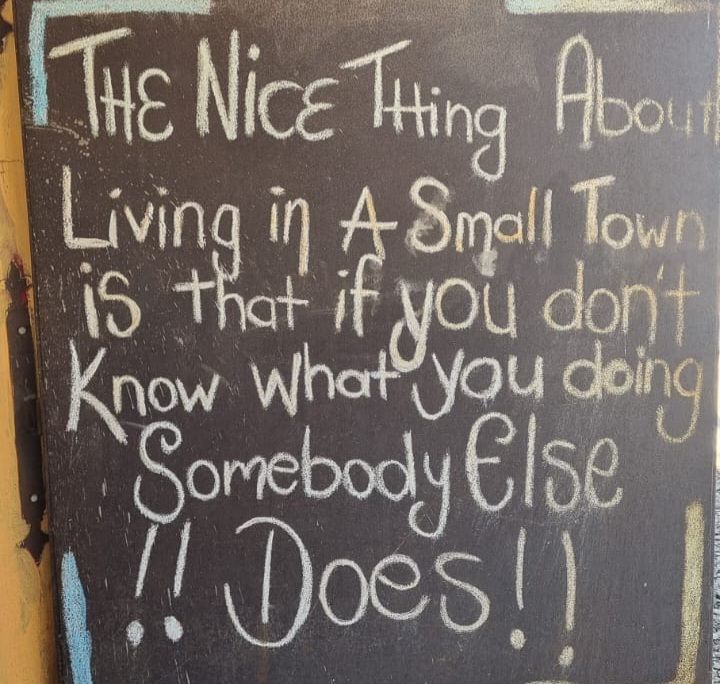 THE NICE THing About
Living in A Small Town
is that if you don't
Know what you doing
Somebody Else
!! Does!!